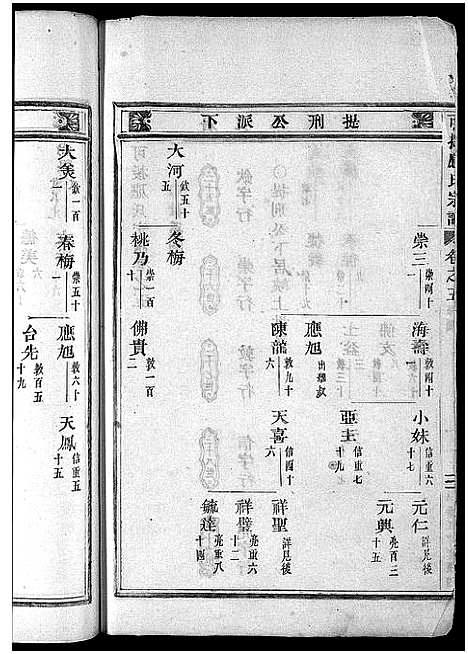 提刑公派下
氏宗譜 卷之五
崇三 崇則十
海壽 敦朋十
小妹 信重六 十七
元仁 詳見後
元興 亮百三 十五
亞主 信重七 十九
應旭 出繼叔
陳龍 敦九十 六
天喜 信四十 六
祥聖 詳見後
祥璧 亮重六 十二
毓達 亮重八 十四
大河 欽五十 五
冬梅
桃乃 崇一百 十
佛貴 敦一百 二
大美 欽一百
春梅 崇五十 一
應旭 敦六十
天鳳 信重五 十五
台先 敦百五 十九